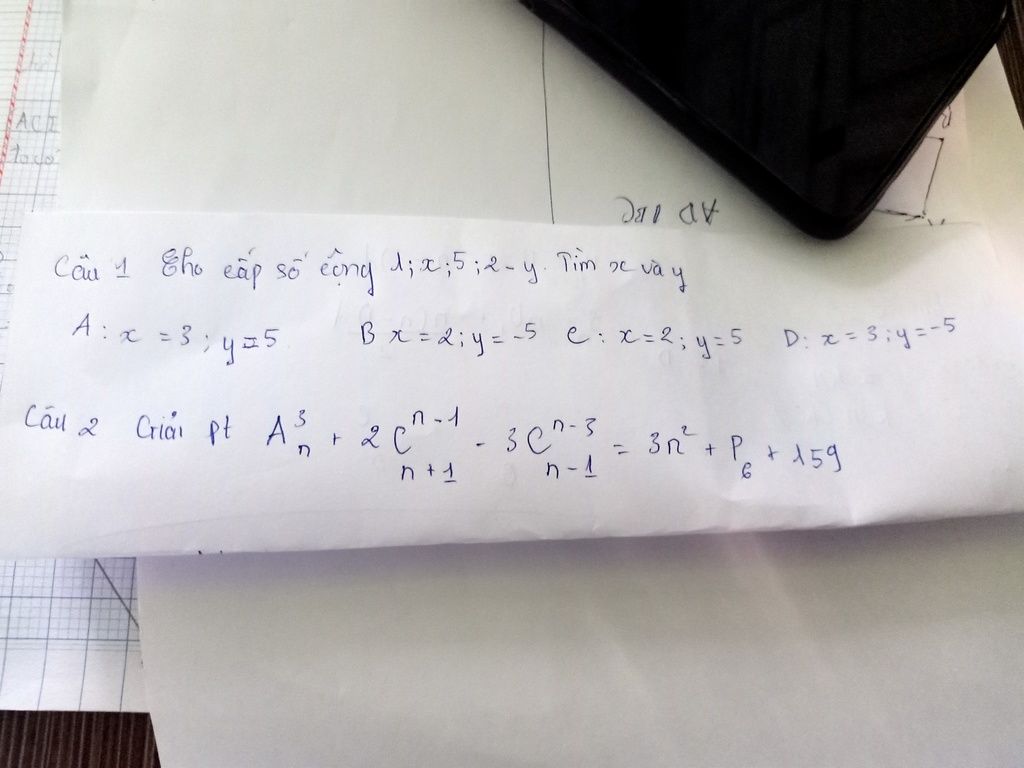 AD // BC
Câu 1 Cho cấp số cộng 1; x; 5; 2 - y. Tìm x và y
A: x = 3; y = 5 B x = 2; y = -5 C: x = 2; y = 5 D: x = 3; y = -5
Câu 2 Giải pt A³ₙ + 2Cⁿ⁻¹ₙ₊₁ - 3Cⁿ⁻³ₙ₋₁ = 3n² + P₆ + 159